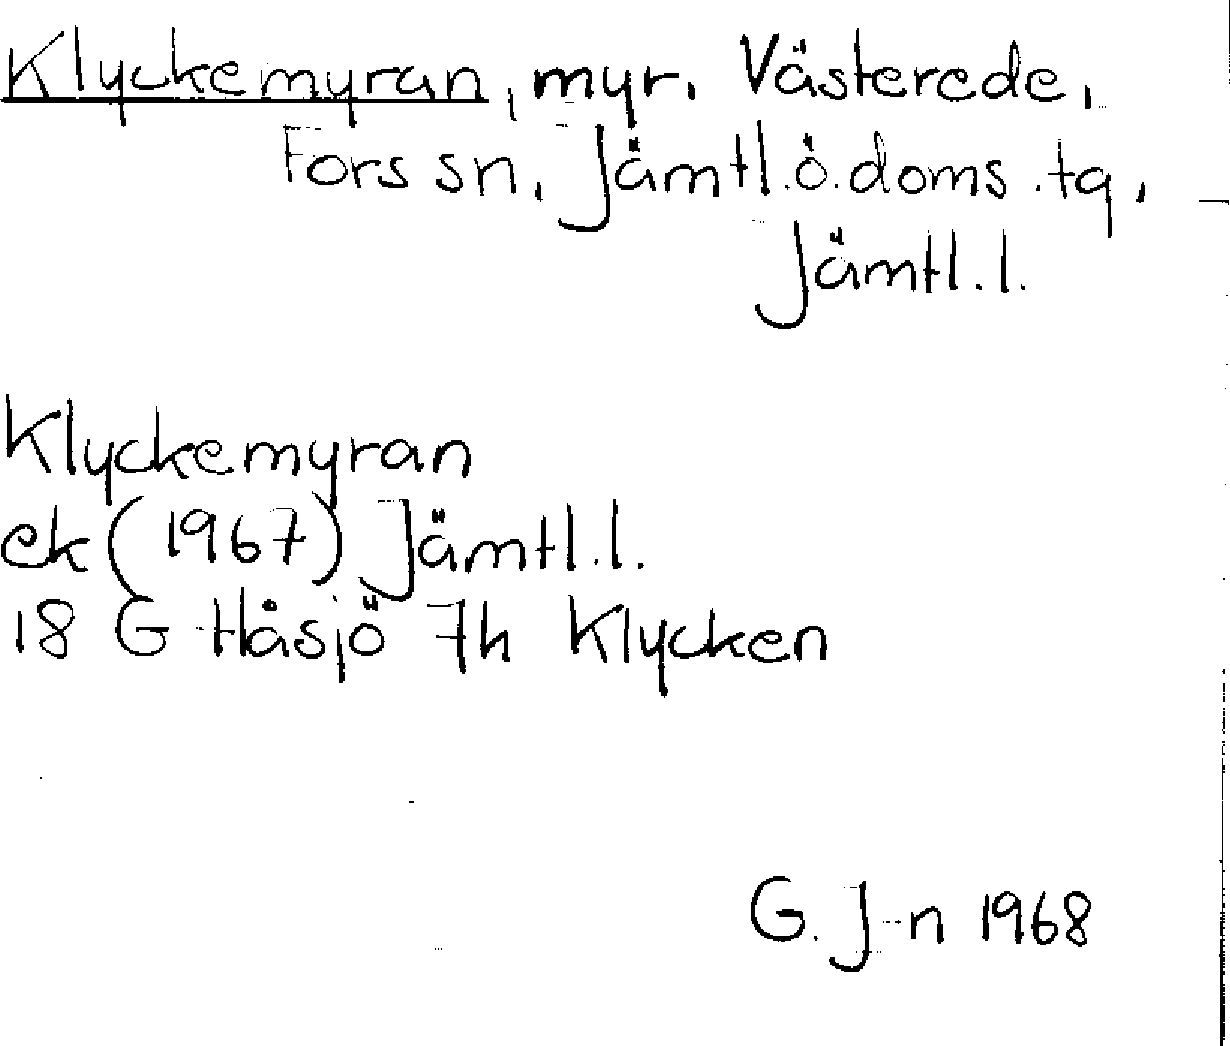 Klyckemyran, myr, Västerede,
Fors sn, Jämtl.ö.doms.tg,
Jämtl.l.
Klyckemyran
ek (1967) Jämtl.l.
18 G Håsjö 7h Klycken
G. J-n 1968